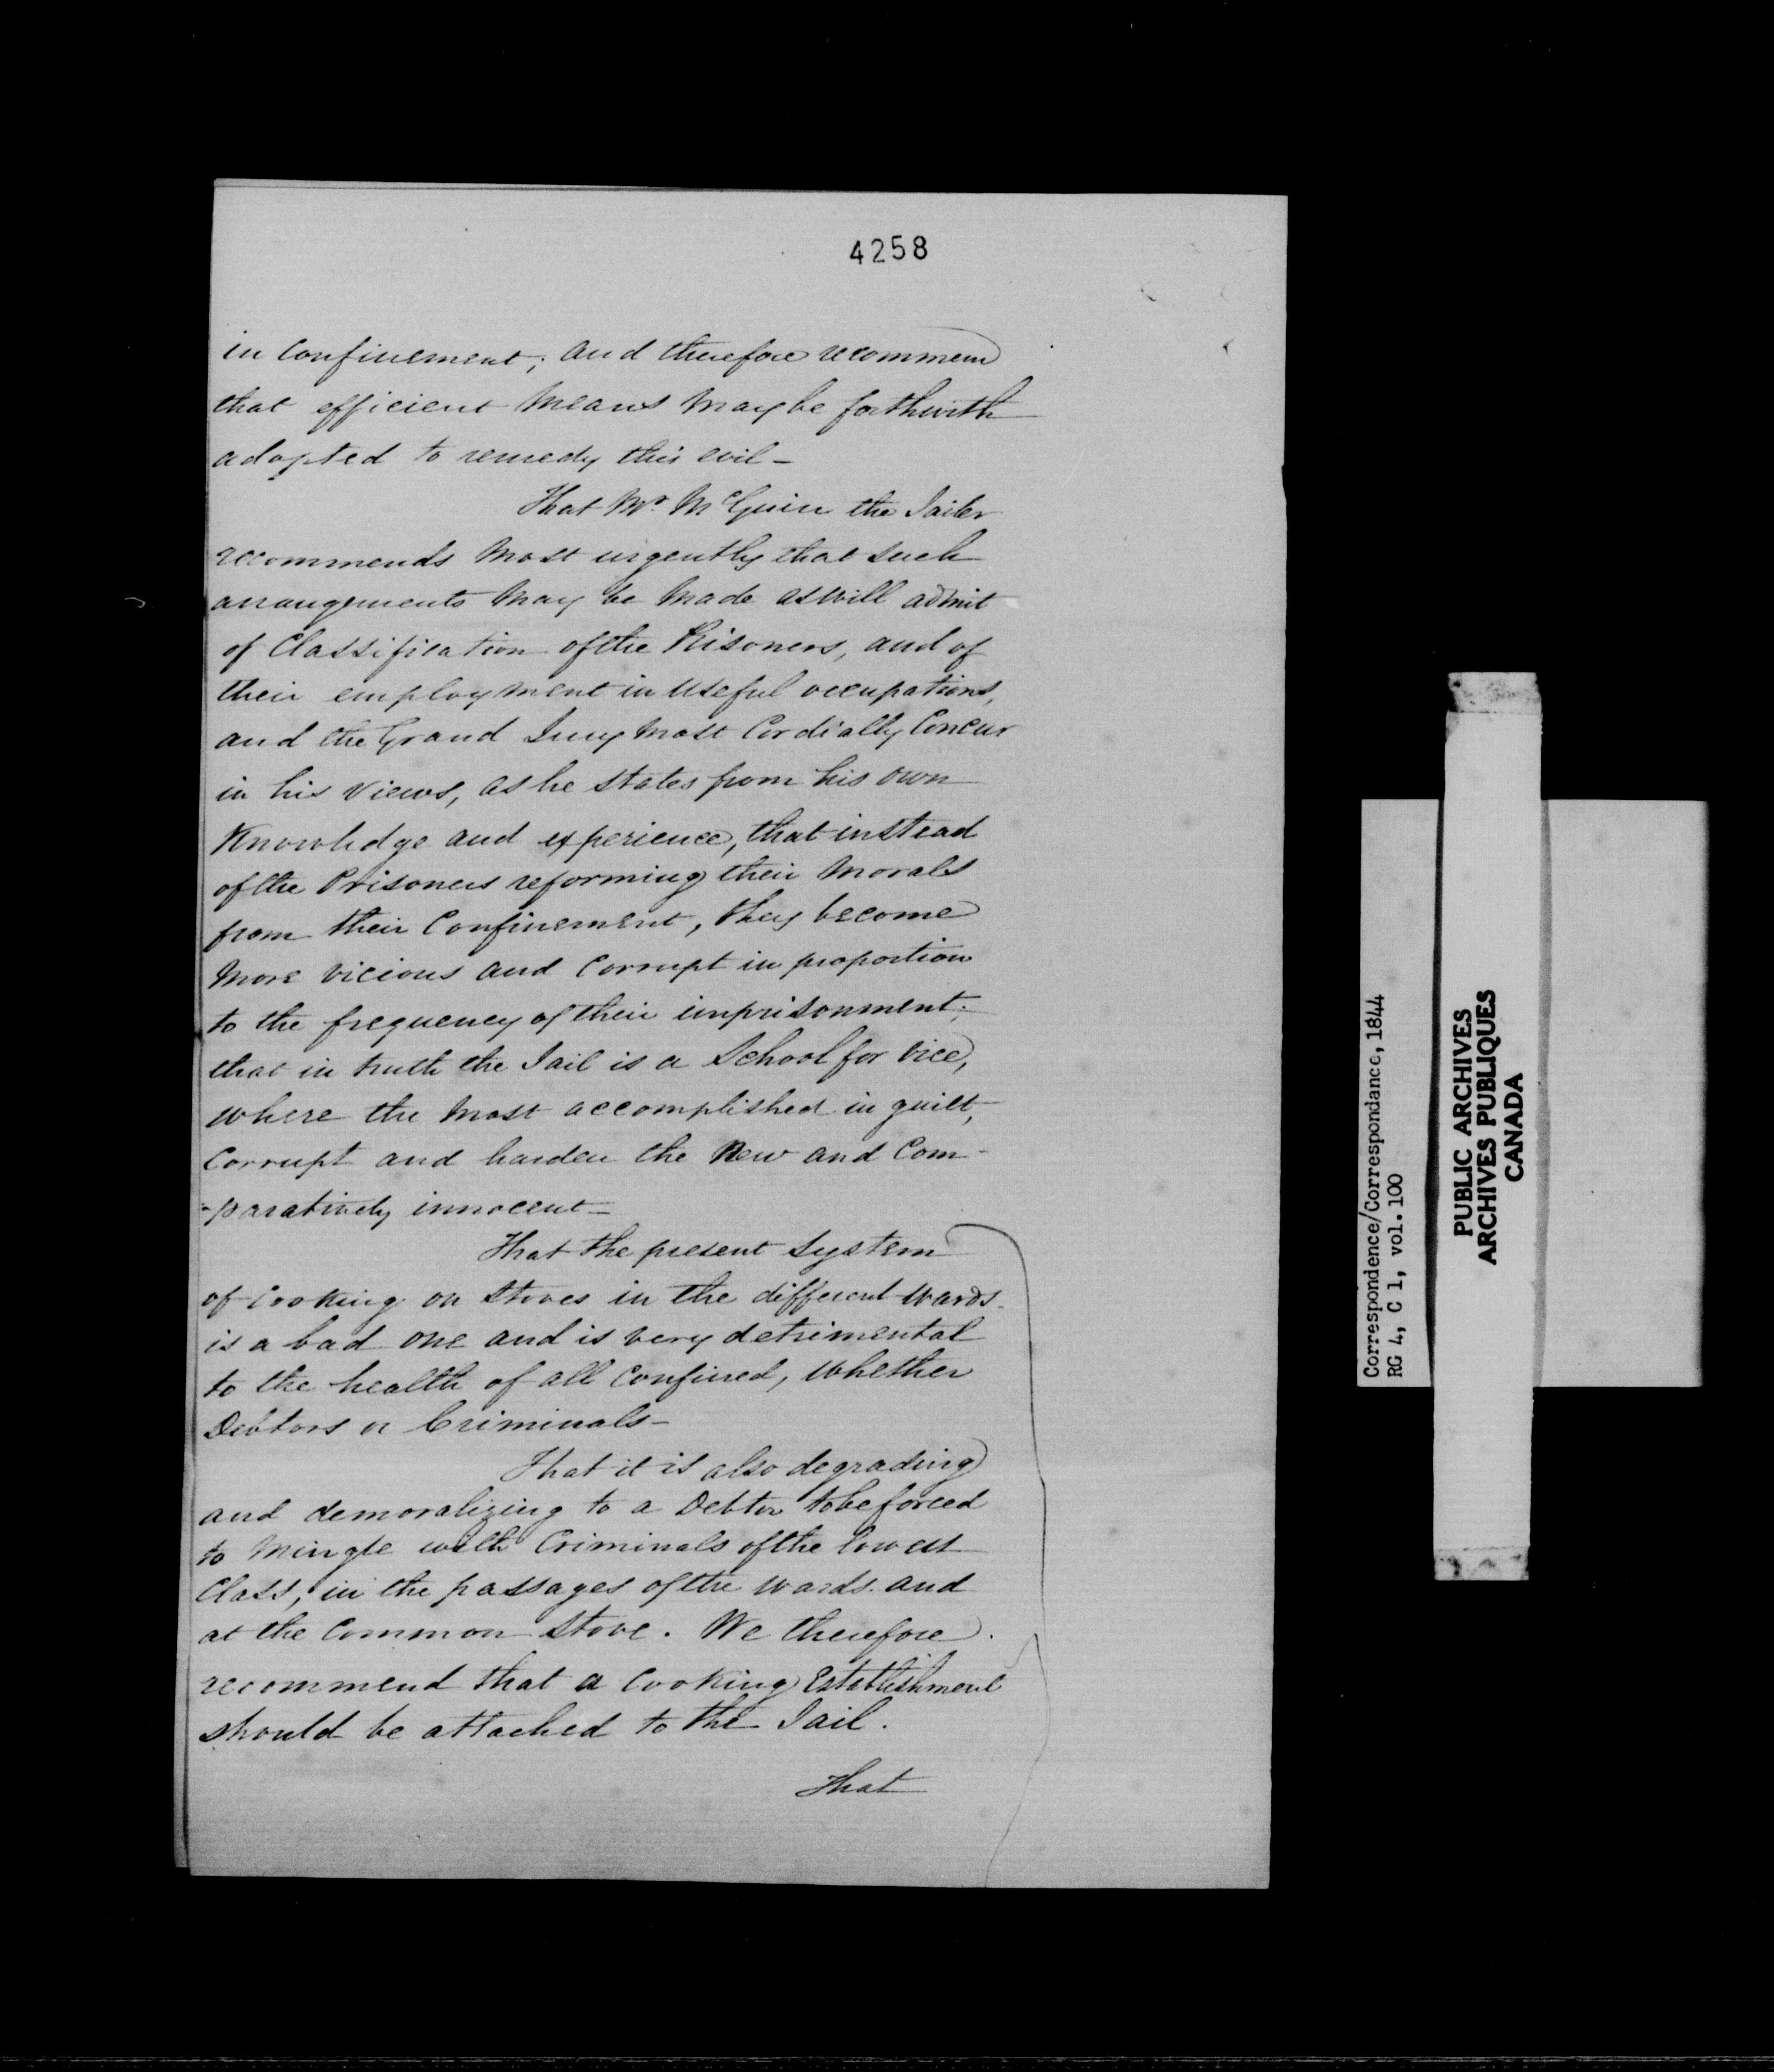 4258
in Confinement; and therefore recommend
that efficient Means May be forthwith
adopted to remedy this evil -
That Mr. McGuin the Jailer
recommends Most urgently that such
arrangements May be Made as will admit
of Classification of the Prisoners, and of
their employment in useful occupations,
and the Grand Jury Most Cordially Concur
in his views, as he states from his own
Knowledge and experience, that instead
of the Prisoners reforming their Morals
from their Confinement, they become
More vicious and Corrupt in proportion
to the frequency of their imprisonment;
that in truth the Jail is a School for vice,
where the Most accomplished in guilt,
Corrupt and harden the New and Com-
-paratively innocent -
That the present System
of Cooking on Stoves in the different wards
is a bad one and is very detrimental
to the health of all Confined, Whether
Debtors or Criminals -
That it is also degrading
and demoralizing to a Debtor to be forced
to Mingle with Criminals of the lowest
Class, in the passages of the wards and
at the Common Stove. We therefore
recommend that a Cooking Establishment
should be attached to the Jail.
That
Correspondence/Correspondance, 1844
RG 4, C 1, vol. 100
PUBLIC ARCHIVES
ARCHIVES PUBLIQUES
CANADA